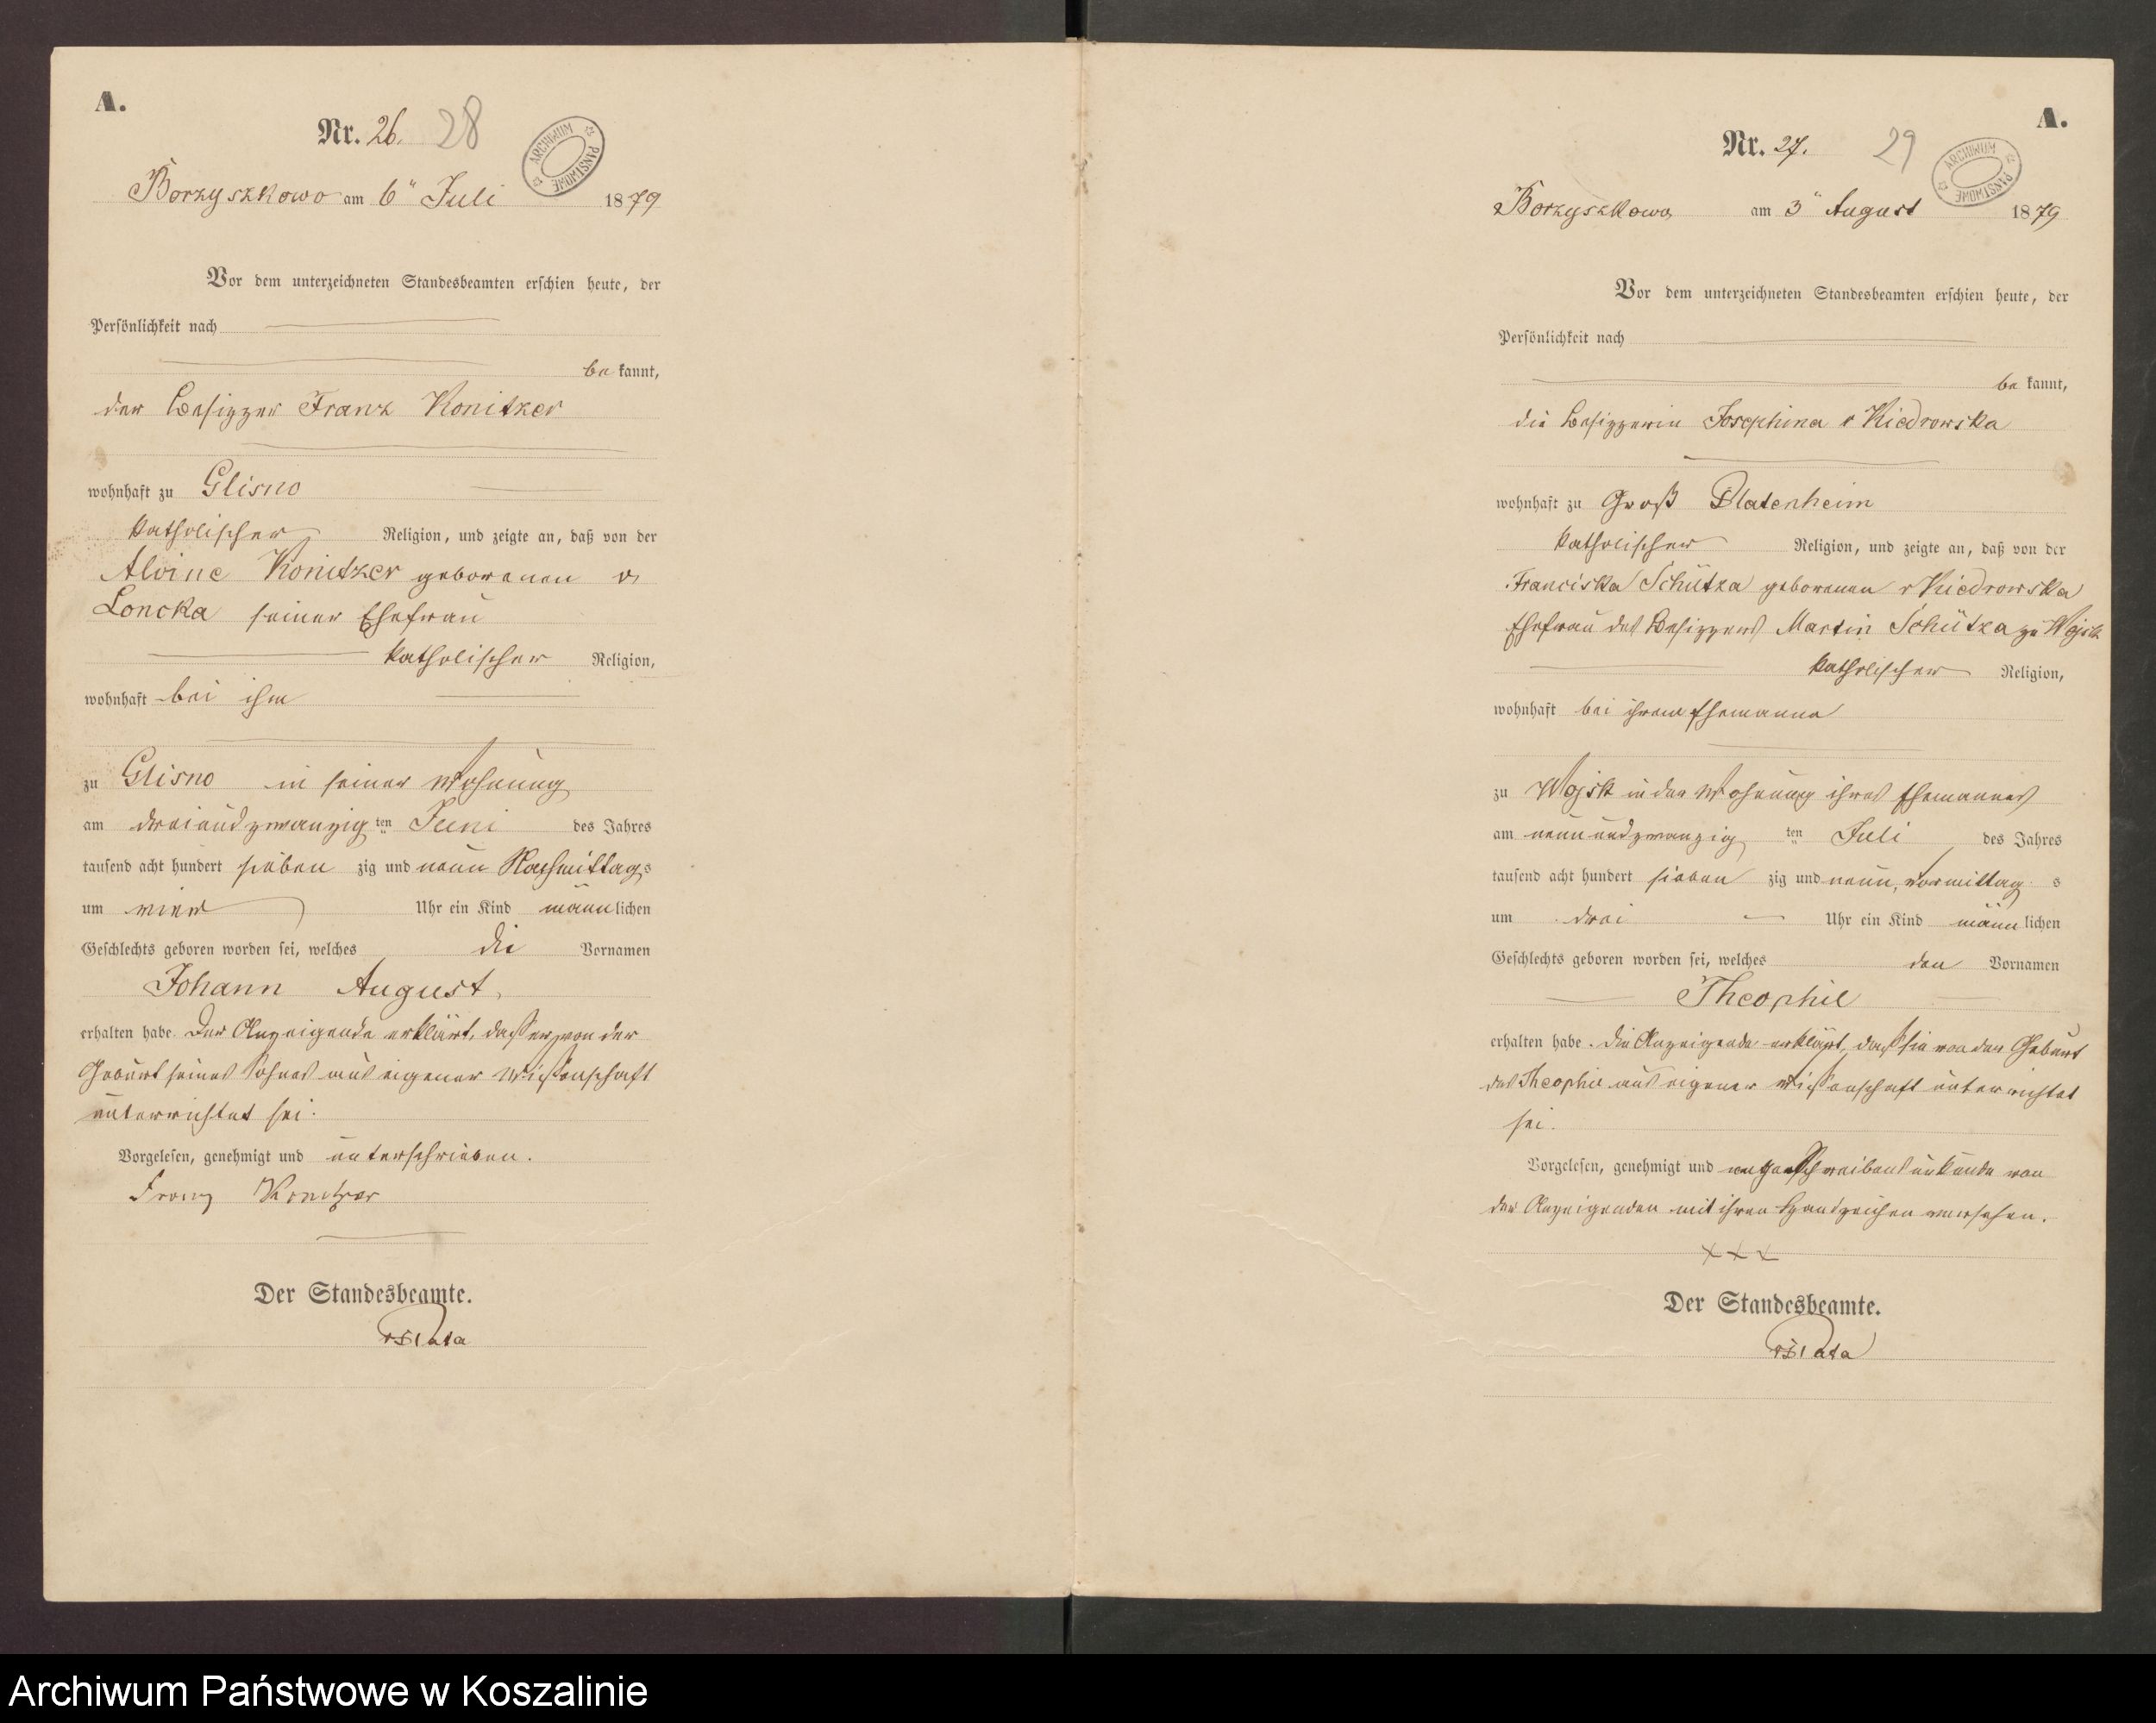 A.
Nr. 26. 28
ARCHIWUM PAŃSTWOWE
Borzyszkowo am 6" Juli 1879
Vor dem unterzeichneten Standesbeamten erschien heute, der
Persönlichkeit nach
be kannt,
der Besitzer Franz Konitzer
wohnhaft zu Glisno
katholischer Religion, und zeigte an, daß von der
Alvine Konitzer geborenen v
Loncka seiner Ehefrau
katholischer Religion,
wohnhaft bei ihm
zu Glisno in seiner Wohnung
am dreiundzwanzig ten Juni des Jahres
tausend acht hundert sieben zig und neun Nachmittags
um vier Uhr ein Kind männlichen
Geschlechts geboren worden sei, welches die Vornamen
Johann August
erhalten habe. Der Anzeigende erklärt, dass er von der
Geburt seines Sohnes aus eigener Wissenschaft
unterrichtet sei.
Vorgelesen, genehmigt und unterschrieben.
Franz Konitzer
Der Standesbeamte.
A.
Nr. 27. 29
ARCHIWUM PAŃSTWOWE
Borzyszkowo am 3" August 1879
Vor dem unterzeichneten Standesbeamten erschien heute, der
Persönlichkeit nach
be kannt,
die Besitzerin Josephina v Kiedrowska
wohnhaft zu Groß Platenheim
katholischer Religion, und zeigte an, daß von der
Franciska Schütza geborenen v Kiedrowska
Ehefrau des Besitzers Martin Schütza zu Wojsk
katholischer Religion,
wohnhaft bei ihrem Ehemanne
zu Wojsk in der Wohnung ihres Ehemannes
am neunundzwanzig ten Juli des Jahres
tausend acht hundert sieben zig und neun, vormittag s
um drei Uhr ein Kind männlichen
Geschlechts geboren worden sei, welches den Vornamen
Theophil
erhalten habe. Die Anzeigende erklärt, dass sie von der Geburt
des Theophil aus eigener Wissenschaft unterrichtet
sei.
Vorgelesen, genehmigt und wegen Schreibensunkunde von
der Anzeigenden mit ihren Handzeichen versehen.
+++
Der Standesbeamte.
Archiwum Państwowe w Koszalinie